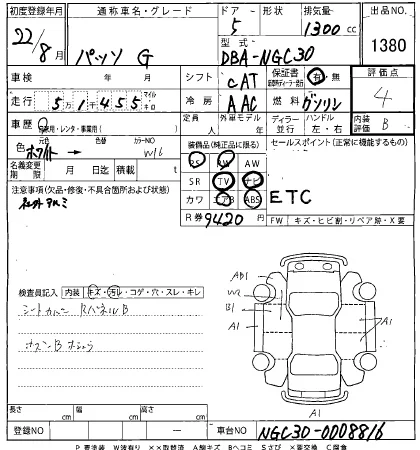 初度登録年月 通称車名・グレード ドア 形状 排気量 出品NO.
22/8月 パッソ G 5 1300cc 1380
型式 DBA-NGC30
車検 年 月 シフト CAT 保証書 有・無 評価点
走行 51455 マイル キロ 冷房 AAC 燃料 ガソリン 4
車歴 自家用・レンタ・事業用( ) 定員 人 外車モデル 年 ディーラー 並行 ハンドル 左・右 内装評価 B
色 ホワイト 元色 色替 カラーNO W16
装備品(純正品に限る) セールスポイント(正常に機能するもの)
名義変更期限 月 日迄 積載量 t
PS PW AW
SR TV ナビ
カワ エアB ABS
ETC
注意事項(欠品・修復・不具合箇所および状態)
社外アルミ
R券 9420円
FW キズ・ヒビ割・リペア跡・X要
検査員記入 内装 キズ・汚レ・コゲ・穴・スレ・キレ
シートカバー RパネルB
AB1
W2
B1
A1
A1
A1
長さ cm 幅 cm 高さ cm
登録NO ― 車台NO NGC30-0008816
P 要塗装 W波有り ××取替済 A線キズ Bヘコミ Sさび ×要交換 C腐食